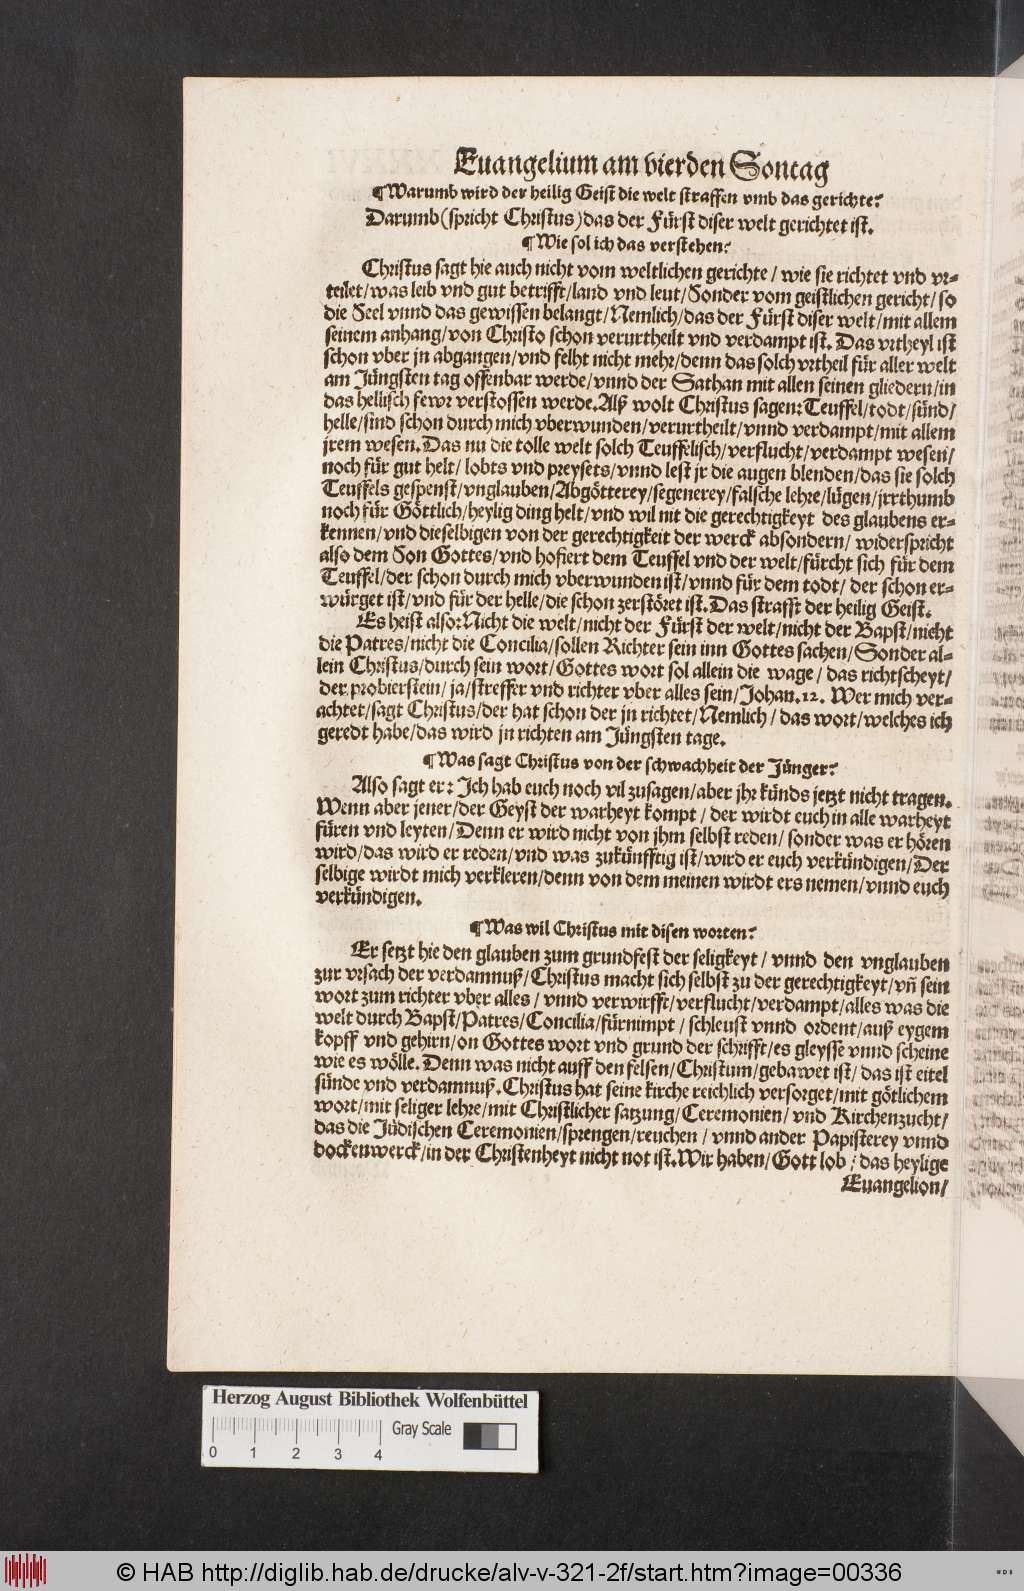 Euangelium am vierden Sontag
¶Warumb wird der heilig Geist die welt straffen vmb das gerichte?
Darumb (spricht Christus) das der Fürst diser welt gerichtet ist.
¶Wie sol ich das verstehen?
Christus sagt hie auch nicht vom weltlichen gerichte / wie sie richtet vnd vr⸗
teilet/was leib vnd gut betrifft/land vnd leut/Sonder vom geistlichen gericht/so
die Seel vnnd das gewissen belangt/Nemlich/das der Fürst diser welt/mit allem
seinem anhang/von Christo schon verurtheilt vnd verdampt ist. Das vrtheyl ist
schon vber jn abgangen/vnd felht nicht mehr/denn das solch vrtheil für aller welt
am Jüngsten tag offenbar werde/vnnd der Sathan mit allen seinen gliedern/in
das hellisch fewr verstossen werde. Alß wolt Christus sagen: Teuffel/todt/sünd/
helle/sind schon durch mich vberwunden/verurtheilt/vnnd verdampt/mit allem
jrem wesen. Das nu die tolle welt solch Teuffelisch/verflucht/verdampt wesen/
noch für gut helt/ lobts vnd preysets/vnnd lest jr die augen blenden/das sie solch
Teuffels gespenst/vnglauben/Abgötterey/segenerey/falsche lehre/lügen/jrrthumb
noch für Göttlich/heylig ding helt/vnd wil nit die gerechtigkeyt des glaubens er⸗
kennen/vnd dieselbigen von der gerechtigkeit der werck absondern/ widerspricht
also dem Son Gottes/vnd hofiert dem Teuffel vnd der welt/fürcht sich für dem
Teuffel/der schon durch mich vberwunden ist/vnnd für dem todt/ der schon er⸗
würget ist/vnd für der helle/die schon zerstöret ist. Das strafft der heilig Geist.
Es heist also: Nicht die welt/nicht der Fürst der welt/nicht der Bapst/nicht
die Patres/nicht die Concilia/sollen Richter sein inn Gottes sachen/Sonder al⸗
lein Christus/durch sein wort/Gottes wort sol allein die wage/ das richtscheyt/
der probierstein/ ja/streffer vnd richter vber alles sein/Johan.12. Wer mich ver⸗
achtet/sagt Christus/der hat schon der jn richtet/Nemlich / das wort/welches ich
geredt habe/das wird jn richten am Jüngsten tage.
¶Was sagt Christus von der schwachheit der Jünger?
Also sagt er: Ich hab euch noch vil zusagen/aber jhr künds jetzt nicht tragen.
Wenn aber jener/der Geyst der warheyt kompt / der wirdt euch in alle warheyt
füren vnd leyten/Denn er wird nicht von jhm selbst reden/ sonder was er hören
wird/das wird er reden/vnd was zukünfftig ist/wird er euch verkündigen/Der
selbige wirdt mich verkleren/denn von dem meinen wirdt ers nemen/vnnd euch
verkündigen.
¶Was wil Christus mit disen worten?
Er setzt hie den glauben zum grundfest der seligkeyt / vnnd den vnglauben
zur vrsach der verdamnuß/Christus macht sich selbst zu der gerechtigkeyt/vñ sein
wort zum richter vber alles / vnnd verwirfft/verflucht/verdampt/alles was die
welt durch Bapst/Patres/Concilia/fürnimpt / schleust vnnd ordent/auß eygem
kopff vnd gehirn/on Gottes wort vnd grund der schrifft/es gleysse vnnd scheine
wie es wölle. Denn was nicht auff den felsen/Christum/gebawet ist/ das ist eitel
sünde vnd verdamnuß. Christus hat seine kirche reichlich versorget/mit götlichem
wort/mit seliger lehre/mit Christlicher satzung/Ceremonien/ vnd Kirchenzucht/
das die Jüdischen Ceremonien/sprengen/reuchen / vnnd ander Papisterey vnnd
dockenwerck/in der Christenheyt nicht not ist. Wir haben/Gott lob / das heylige
Euangelion/
Herzog August Bibliothek Wolfenbüttel
Gray Scale
0 1 2 3 4
© HAB http://diglib.hab.de/drucke/alv-v-321-2f/start.htm?image=00336